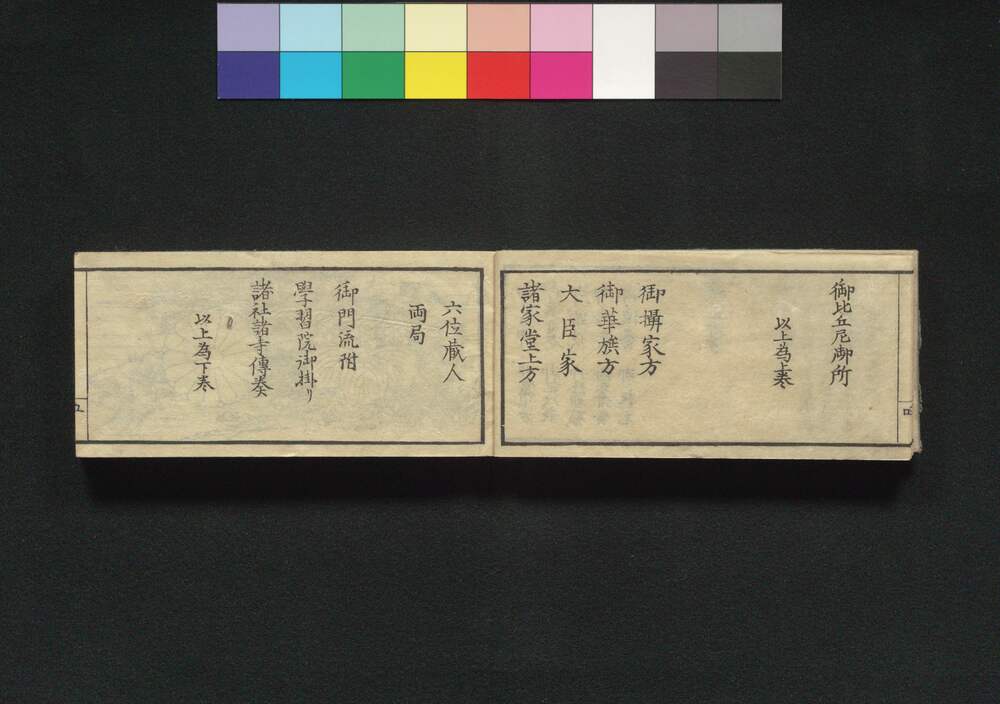 御比丘尼御所
以上為上巻
御攝家方
御華族方
大臣家
諸家堂上方
六位蔵人
両局
御門流附
學習院御掛り
諸社諸寺傳奏
以上為下巻